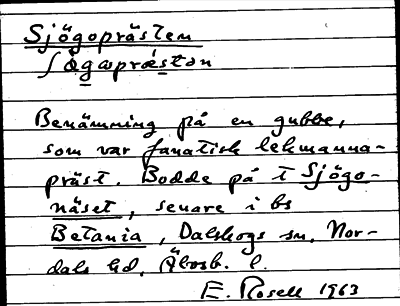 Sjögoprästen
ʃö̀gωprǽstən
Benämning på en gubbe,
som var fanatisk lekmanna-
präst. Bodde på t Sjögo-
näset, senare i bs
Betania, Dalskogs sn, Nor-
dals hd, Älvsb. l.
E. Rosell 1963